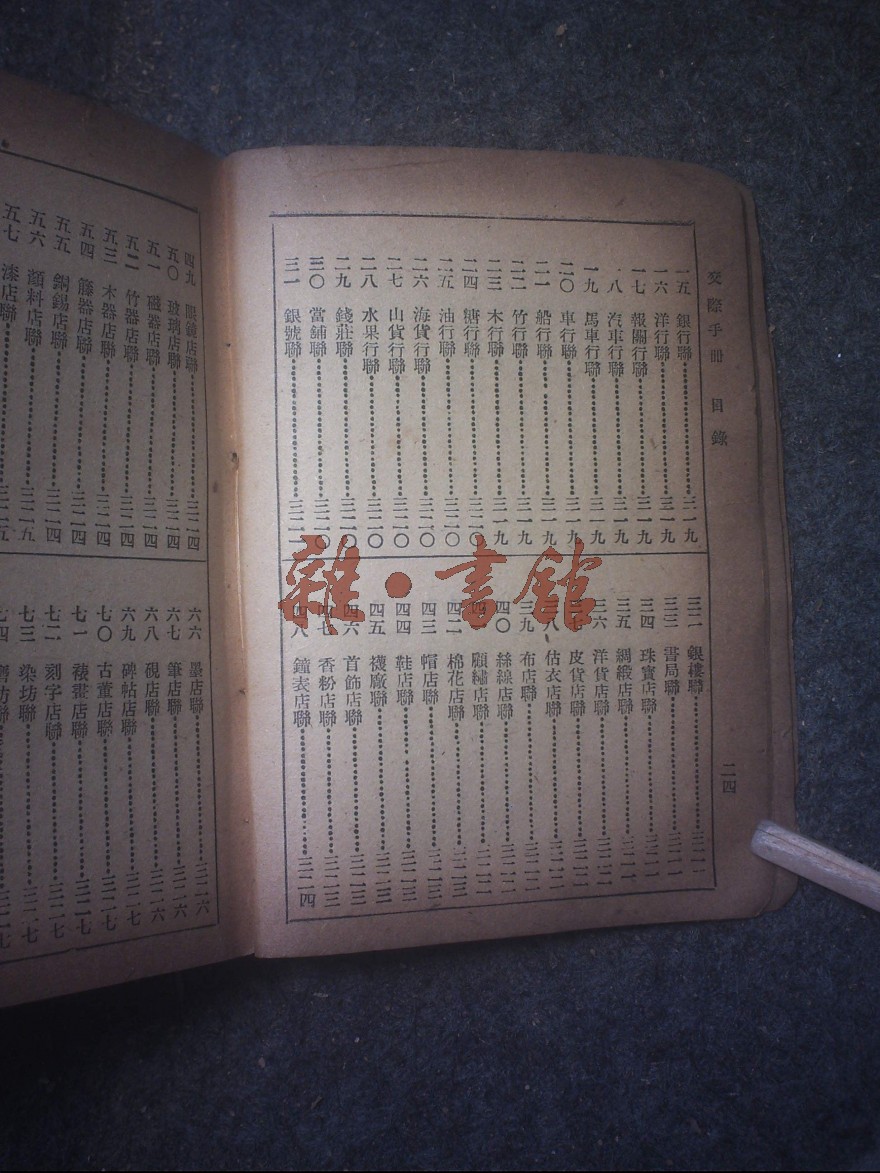 交際手冊 目錄
二四
一五 銀行聯 三一九
一六 洋行聯 三一九
一七 報關行聯 三一九
一八 汽車行聯 三一九
一九 馬車行聯 三一九
二〇 車行聯 三一九
二一 船行聯 三一九
二二 竹行聯 三一九
二三 木行聯 三一九
二四 糖行聯 三二〇
二五 油行聯 三二〇
二六 海貨行聯 三二〇
二七 山貨行聯 三二〇
二八 水果行聯 三二〇
二九 錢莊聯 三二〇
三〇 當舖聯 三二〇
三一 銀號聯
三二 銀樓聯
三三 書局聯
三四 珠寶店聯
三五 綢緞店聯
三六 洋貨店聯
三七 皮貨店聯
三八 估衣店聯
三九 布店聯
四〇 絲線店聯
顧繡店聯
四二 棉花店聯
四三 帽店聯
四四 鞋店聯
四五 襪廠聯
四六 首飾店聯
四七 香粉店聯
四八 鐘表店聯 三二四
四九 眼鏡店聯 三二四
五〇 玻璃店聯 三二四
五一 磁器店聯 三二四
五二 竹器店聯 三二四
五三 木器店聯 三二四
五四 籐器店聯 三二四
五五 銅錫店聯 三二四
五六 顏料店聯 三二五
五七 漆店聯
六六 墨店聯 三二六
六七 筆店聯 三二六
六八 硯店聯 三二六
六九 碑帖店聯 三二七
七〇 古董店聯 三二七
七一 裱畫店聯 三二七
七二 刻字店聯 三二七
七三 染坊聯 三二七
七四
雜·書館